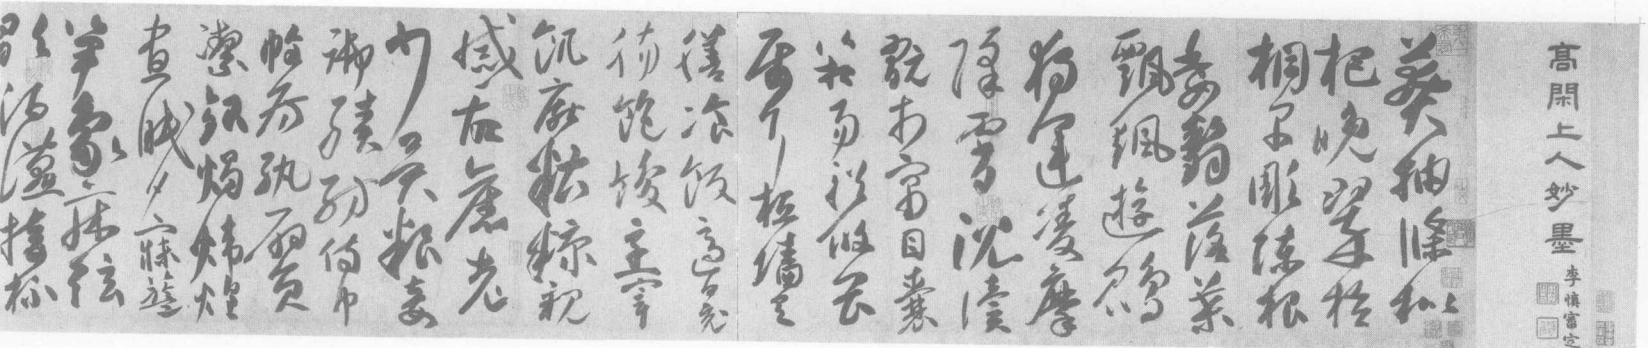 高閑上人妙墨
李慎富定
莽抽條枇
杷晚翠梧
桐早彫陳根
委翳落葉
飄颻遊鵾
獨運凌摩
絳霄耽讀
翫市寓目囊
箱易輶攸畏
屬耳垣牆具
膳飡飯適口充
腸飽飫烹宰
飢厭糟糠親
戚故舊老
少異糧妾
御績紡侍巾
帷房紈扇員
潔銀燭煒煌
晝眠夕寐籃
笋象床弦
歌酒讌接杯